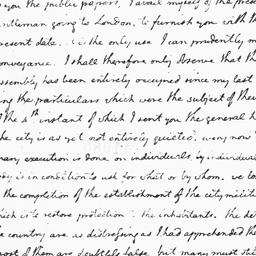 you the public papers, I avail myself of the prese
entleman going to London, to furnish you with th
resent date. it is the only use I can prudently m
onveyance. I shall therefore only observe that th
assembly has been entirely occupied since my last
ing the particulars which were the subject of their
of the 4th instant of which I sent you the general h
the city is as yet not entirely quieted. every now
many execution is done on individuals, by individual
body is in condition to ask for what or by whom. we lo
the completion of the establishment of the city milit
hich is to restore protection to the inhabitants. the de
he country are as distressing as I had apprehended the
most of them are doubtless false, but many must still